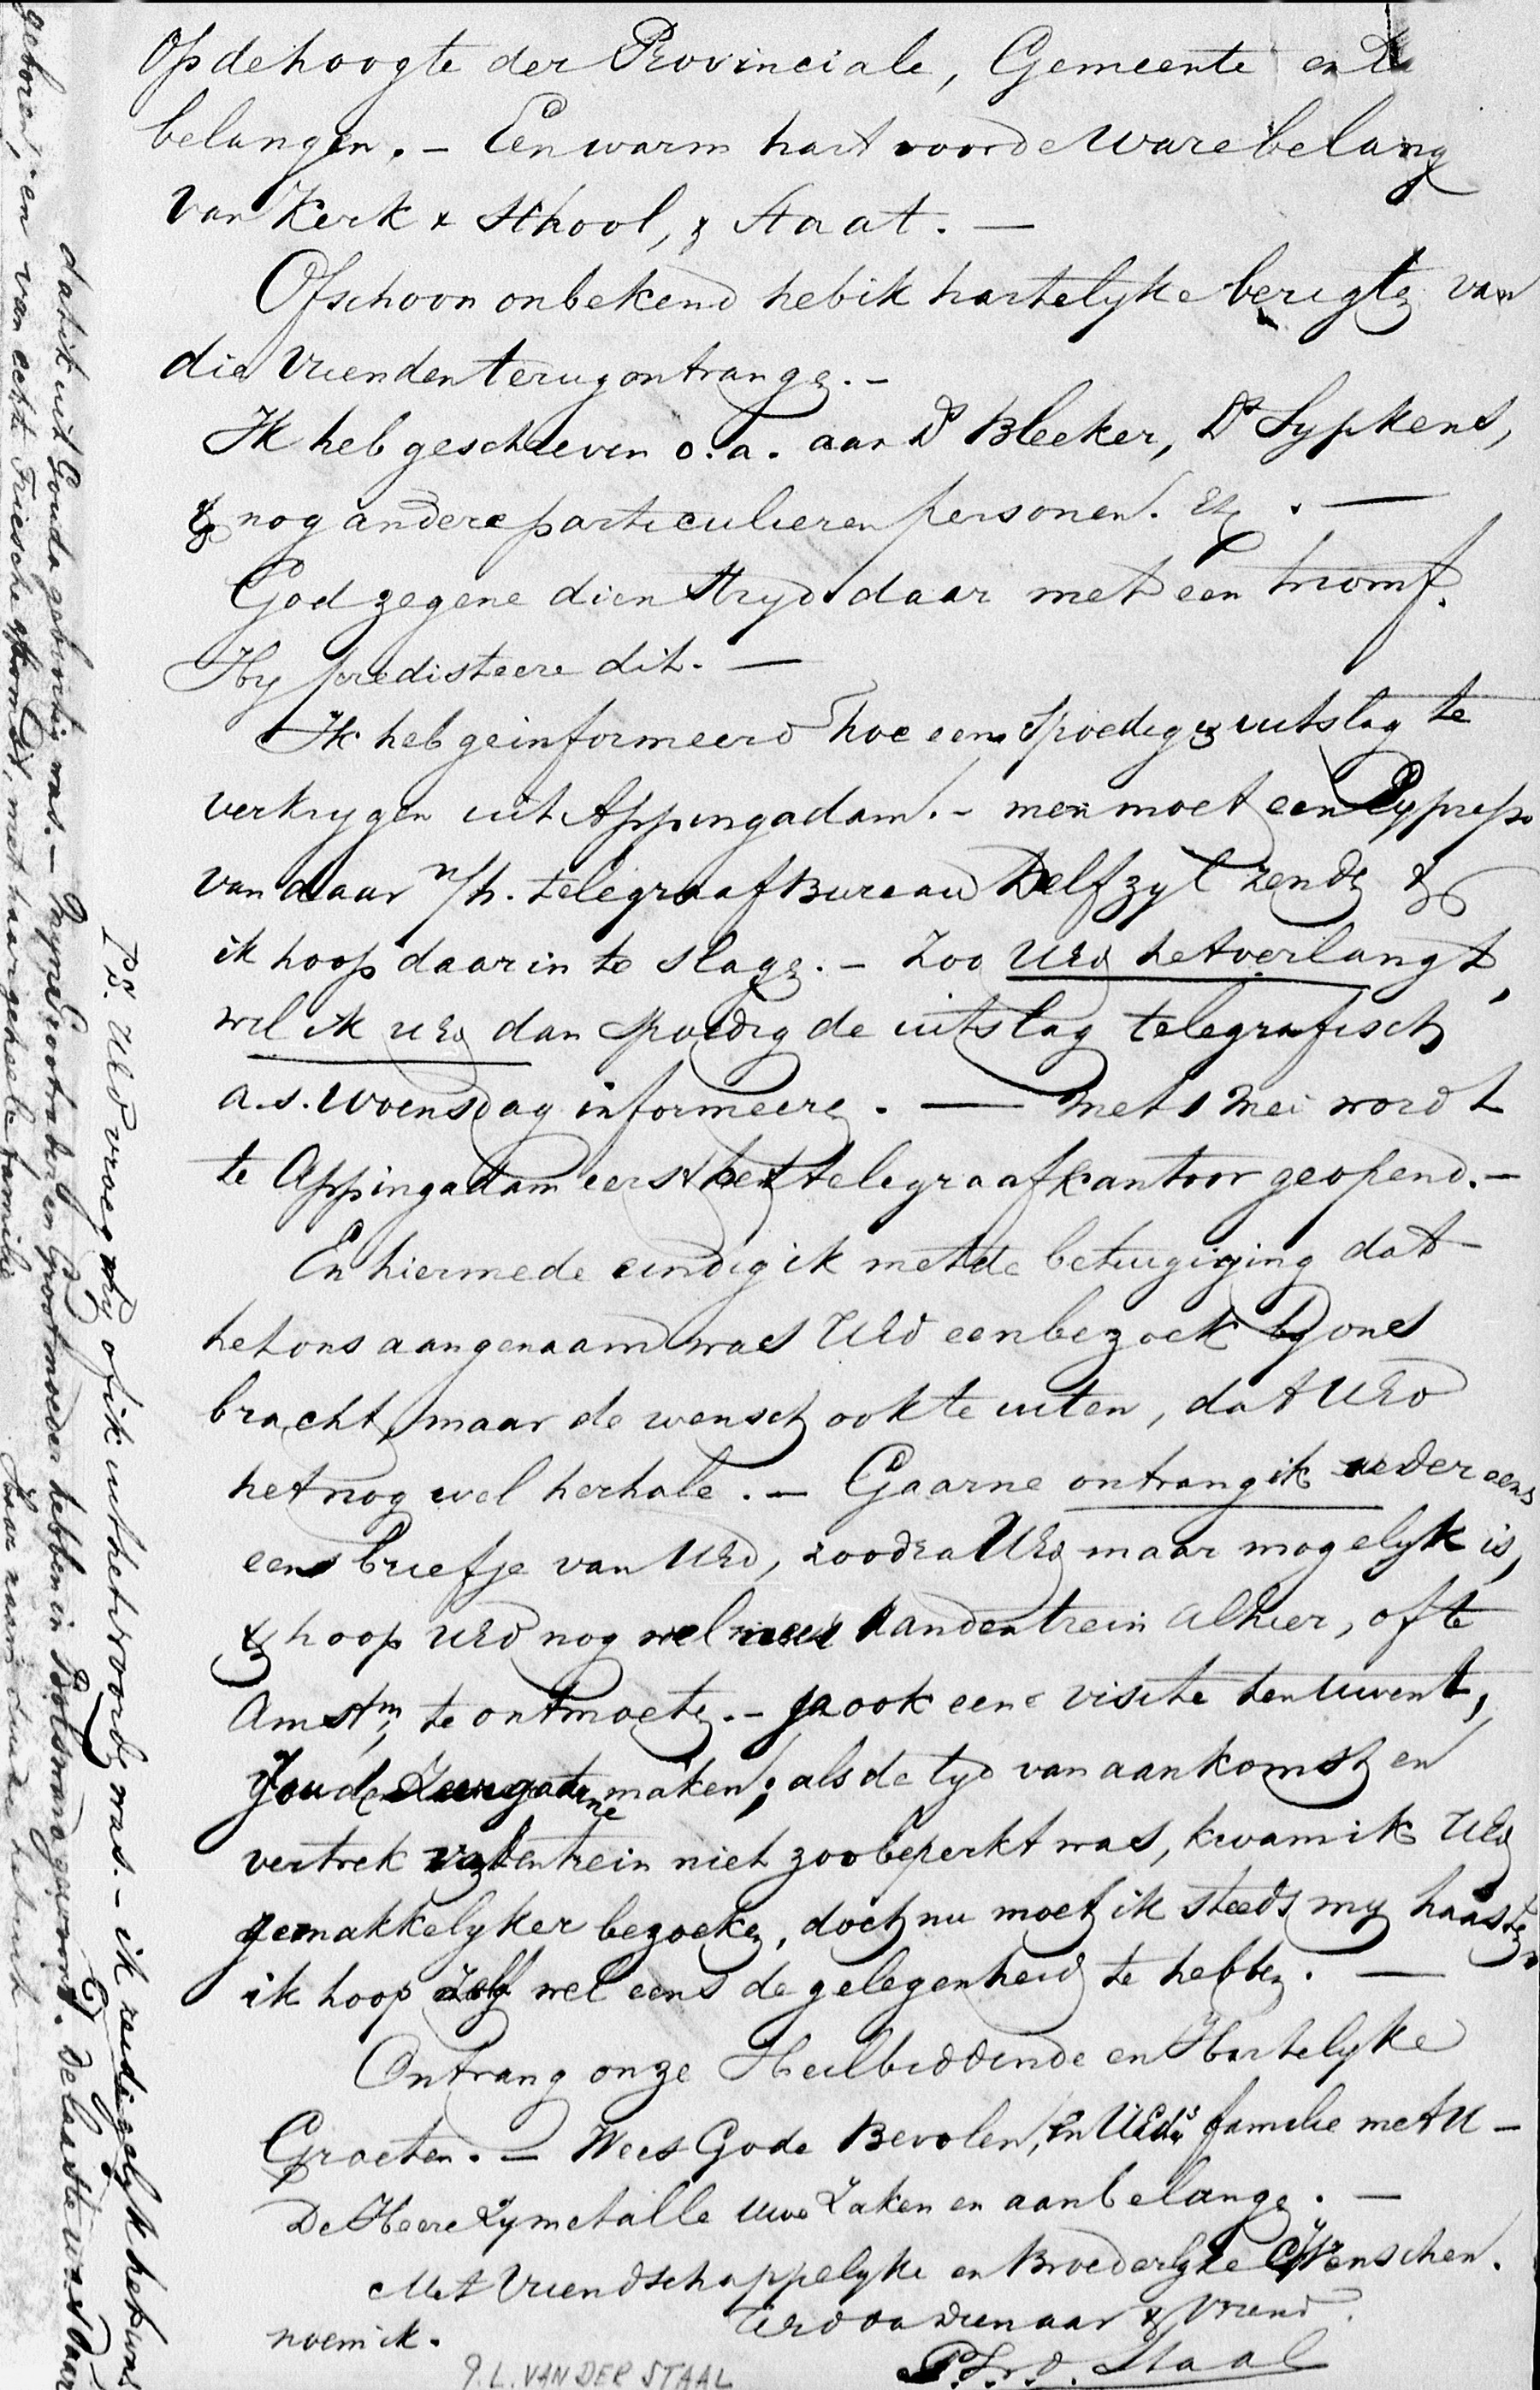 Op de hoogte der Provinciale, Gemeente en
belangen. – Een warm hart voor de ware belang
van Kerk & School, & Staat. –
Ofschoon onbekend heb ik hartelyke berigten van
die vrienden terug ontvangen. –
Ik heb geschreven o.a. aan Ds Bleeker, Ds Sypkens,
& nog andere particulieren personen. Etc. –
God zegene dien Stryd daar met een triomf.
Hy predisteere dit. –
Ik heb geinformeerd hoe een spoedigen uitslag te
verkrygen uit Appingadam. – men moet een
van daar n/h. telegraaf Bureau Delfzyl zenden &
ik hoop daarin te slagen. – Zoo UEd het verlangt,
wil ik UEd dan spoedig de uitslag telegrafisch
a.s. woensdag informeeren. – Met 1 Mei wordt
te Appingadam eerst het telegraafkantoor geopend. –
En hiermede eindig ik met de betuigiging dat
het ons aangenaam was UEd een bezoek by ons
bracht, maar de wensch ook te uiten, dat UEd
het nog wel herhale. – Gaarne ontvang ik weder eens
eens briefje van UEd, zoodra UEd maar mogelyk is,
& hoop UEd nog wel aan den trein alhier, of te
Amstm, te ontmoeten. – Ja ook eene visite ten uwent,
Zoude gaarne maken; als de tyd van aankomst en
vertrek van den trein niet zoo beperkt was, kwam ik UEd
gemakkelyker bezoeken, doch nu moet ik steeds my haasten
ik hoop zelf wel eens de gelegenheid te hebben. –
Ontvang onze Heilbiddende en Hartelyke
Groeten. – Wees Gode Bevolen, en UEds familie met U –
De Heere zy met alle uwe Zaken en aanbelangen. –
Met Vriendschappelyke en Broederlyke Wenschen.
noem ik. UEd dw dienaar & Vriend.
P.L. v. d. Staal
P.L. VAN DER STAAL
PS. UEd vroeg my of ik uit het woord was. – ik zeide gelyk het was
dat ik uit Gouda geboortig was. – Myne Grootvader en Grootmoeder hebben in Bolsward gewoond. De laatste was daar
geboren, en van echt Friesche afkomst, met haar geheele familie